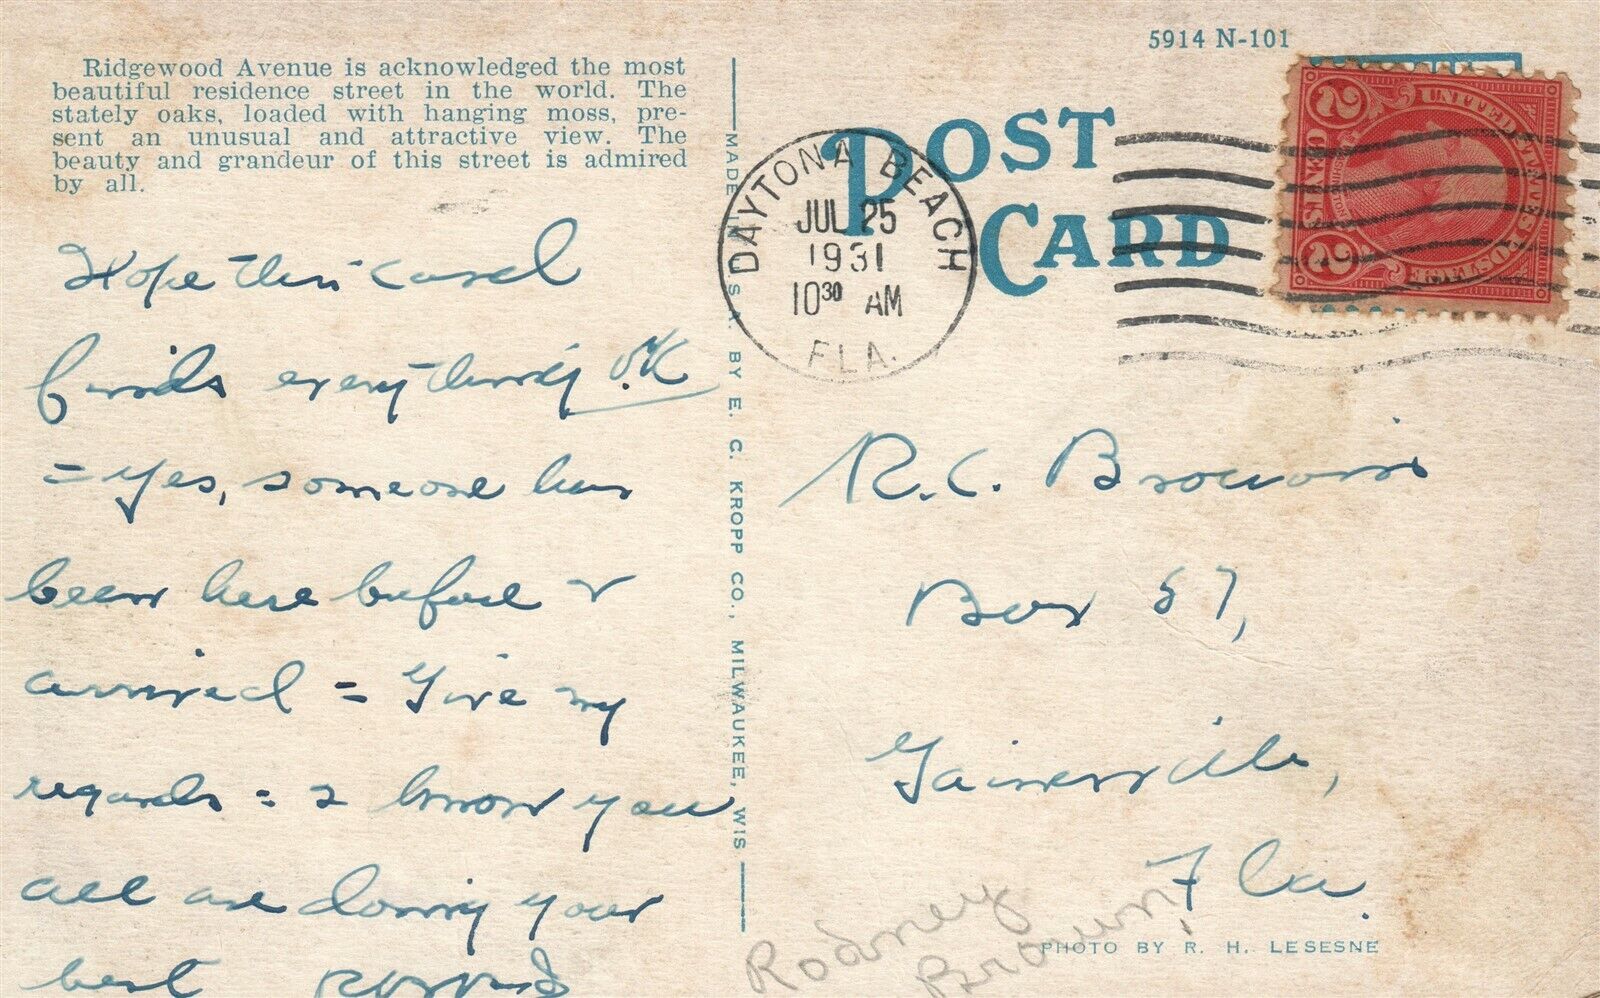 5914 N-101
Ridgewood Avenue is acknowledged the most
beautiful residence street in the world. The
stately oaks, loaded with hanging moss, pre-
sent an unusual and attractive view. The
beauty and grandeur of this street is admired
by all.
Hope this card
finds everything O.K
= Yes, someone has
been here before &
arrived = Give my
regards = I know you
all are doing your
best
MADE IN U.S.A. BY E. C. KROPP CO., MILWAUKEE, WIS
POST
CARD
DAYTONA BEACH
JUL 25
1931
10 30 AM
FLA.
UNITED STATES POSTAGE
2 CENTS 2
R. C. Brown
Box 57,
Gainesville,
Fla.
Rodney
Brown
PHOTO BY R. H. LESESNE